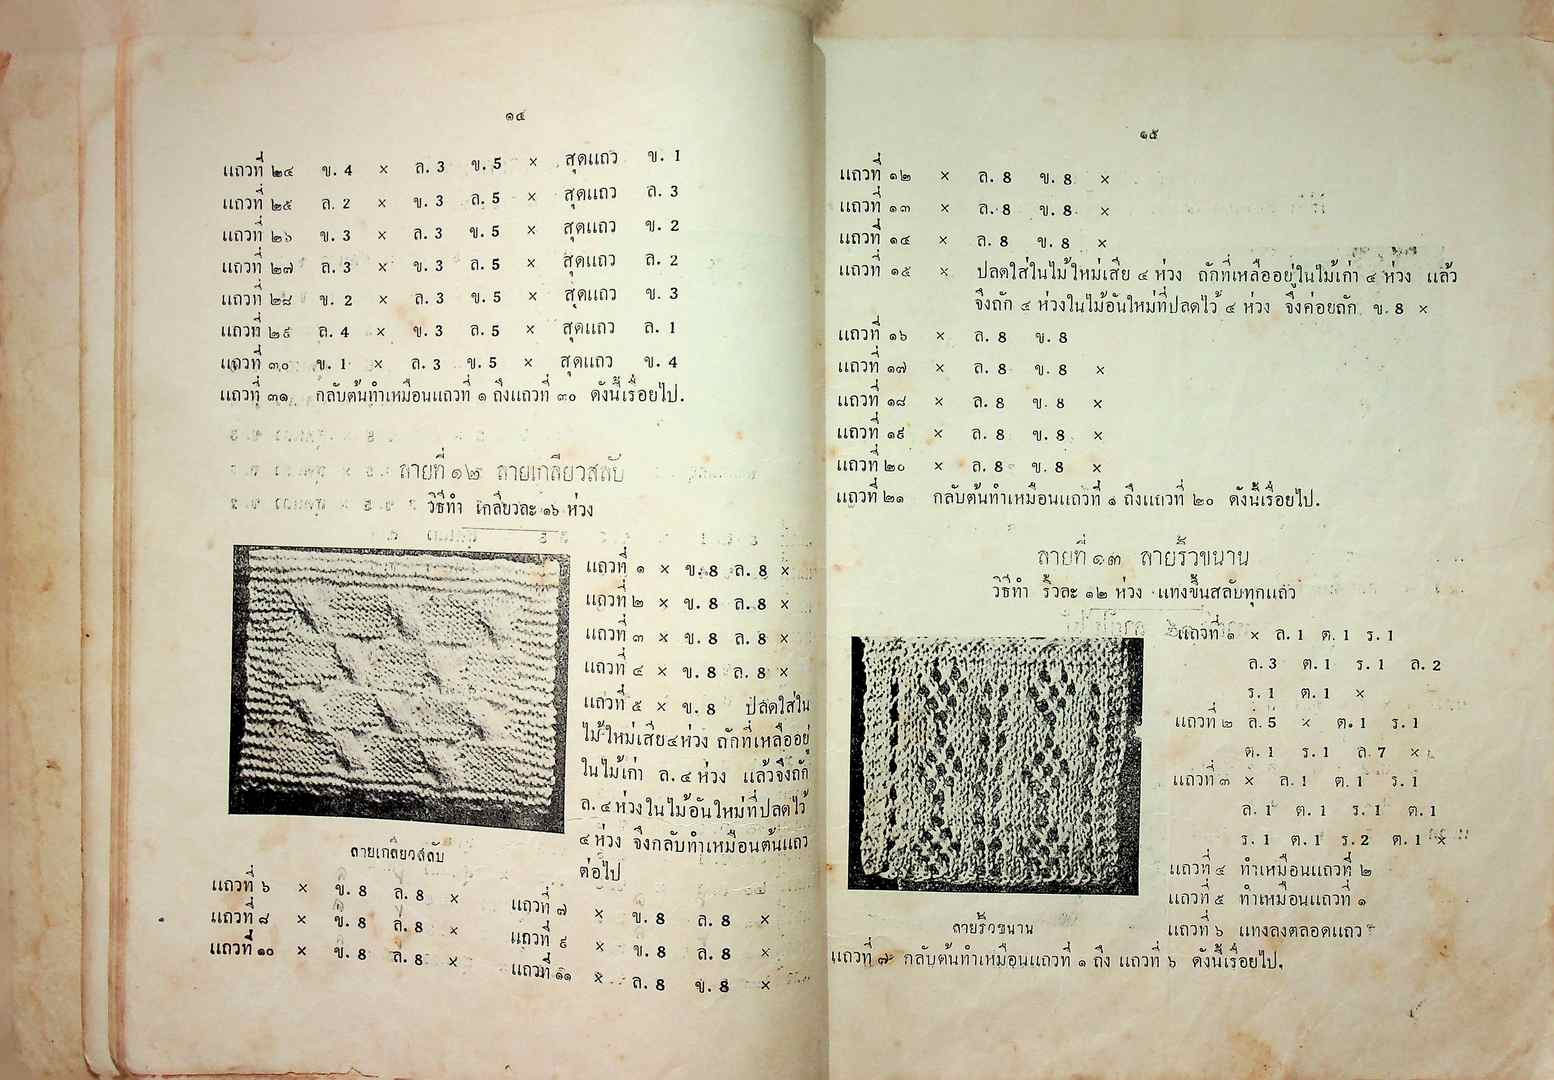 ๑๔
แถวที่ ๒๔ ข. 4 × ล. 3 ข. 5 × สุดแถว ข. 1
แถวที่ ๒๕ ล. 2 × ข. 3 ล. 5 × สุดแถว ล. 3
แถวที่ ๒๖ ข. 3 × ล. 3 ข. 5 × สุดแถว ข. 2
แถวที่ ๒๗ ล. 3 × ข. 3 ล. 5 × สุดแถว ล. 2
แถวที่ ๒๘ ข. 2 × ล. 3 ข. 5 × สุดแถว ข. 3
แถวที่ ๒๙ ล. 4 × ข. 3 ล. 5 × สุดแถว ล. 1
แถวที่ ๓๐ ข. 1 × ล. 3 ข. 5 × สุดแถว ข. 4
แถวที่ ๓๑ กลับต้นทำเหมือนแถวที่ ๑ ถึงแถวที่ ๓๐ ดังนี้เรื่อยไป.
ลายที่ ๑๒ ลายเกลียวสลับ
วิธีทำ เกลียวละ ๑๖ ห่วง
แถวที่ ๑ × ข. 8 ล. 8 ×
แถวที่ ๒ × ข. 8 ล. 8 ×
แถวที่ ๓ × ข. 8 ล. 8 ×
แถวที่ ๔ × ข. 8 ล. 8 ×
แถวที่ ๕ × ข. 8 ปลดใส่ใน
ไม้ใหม่เสีย๔ห่วง ถักที่เหลืออยู่
ในไม้เก่า ล. ๔ ห่วง แล้วจึงถัก
ล. ๔ ห่วงในไม้อันใหม่ที่ปลดไว้
๔ ห่วง จึงกลับทำเหมือนต้นแถว
ต่อไป
ลายเกลียวสลับ
แถวที่ ๖ × ข. 8 ล. 8 × แถวที่ ๗ × ข. 8 ล. 8 ×
แถวที่ ๘ × ข. 8 ล. 8 × แถวที่ ๙ × ข. 8 ล. 8 ×
แถวที่ ๑๐ × ข. 8 ล. 8 × แถวที่ ๑๑ × ล. 8 ข. 8 ×
๑๕
แถวที่ ๑๒ × ล. 8 ข. 8 ×
แถวที่ ๑๓ × ล. 8 ข. 8 ×
แถวที่ ๑๔ × ล. 8 ข. 8 ×
แถวที่ ๑๕ × ปลดใส่ในไม้ใหม่เสีย ๔ ห่วง ถักที่เหลืออยู่ในไม้เก่า ๔ ห่วง แล้ว
จึงถัก ๔ ห่วงในไม้อันใหม่ที่ปลดไว้ ๔ ห่วง จึงค่อยถัก ข. 8 ×
แถวที่ ๑๖ × ล. 8 ข. 8
แถวที่ ๑๗ × ล. 8 ข. 8 ×
แถวที่ ๑๘ × ล. 8 ข. 8 ×
แถวที่ ๑๙ × ล. 8 ข. 8 ×
แถวที่ ๒๐ × ล. 8 ข. 8 ×
แถวที่ ๒๑ กลับต้นทำเหมือนแถวที่ ๑ ถึงแถวที่ ๒๐ ดังนี้เรื่อยไป.
ลายที่ ๑๓ ลายริ้วขนาน
วิธีทำ ริ้วละ ๑๒ ห่วง แทงขึ้นสลับทุกแถว
แถวที่ ๑ × ล. 1 ต. 1 ร. 1
ล. 3 ต. 1 ร. 1 ล. 2
ร. 1 ต. 1 ×
แถวที่ ๒ ล. 5 × ต. 1 ร. 1
ต. 1 ร. 1 ล. 7 ×
แถวที่ ๓ × ล. 1 ต. 1 ร. 1
ล. 1 ต. 1 ร. 1 ต. 1
ร. 1 ต. 1 ร. 2 ต. 1 ×
แถวที่ ๔ ทำเหมือนแถวที่ ๒
แถวที่ ๕ ทำเหมือนแถวที่ ๑
แถวที่ ๖ แทงลงตลอดแถว
ลายริ้วขนาน
แถวที่ ๗ กลับต้นทำเหมือนแถวที่ ๑ ถึง แถวที่ ๖ ดังนี้เรื่อยไป.